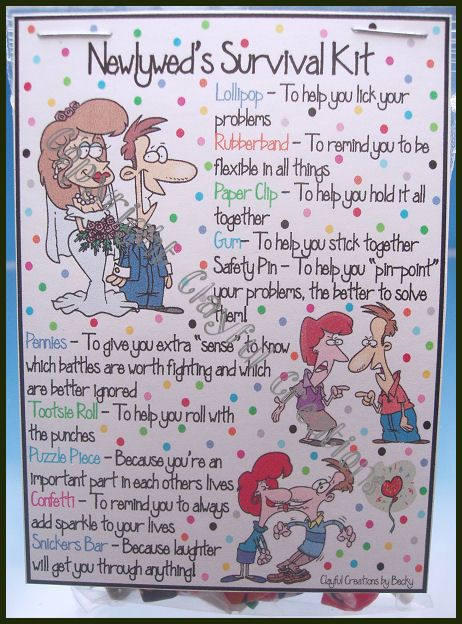 Newlywed's Survival Kit
Lollipop - To help you lick your
problems
Rubberband - To remind you to be
flexible in all things
Paper Clip - To help you hold it all
together
Gum- To help you stick together
Safety Pin - To help you "pin-point"
your problems, the better to solve
them!
Pennies - To give you extra "sense" to know
which battles are worth fighting and which
are better ignored
Tootsie Roll - To help you roll with
the punches
Puzzle Piece - Because you're an
important part in each others lives
Confetti - To remind you to always
add sparkle to your lives
Snickers Bar - Because laughter
will get you through anything!
Clayful Creations by Becky
Copyright Clayful Creations